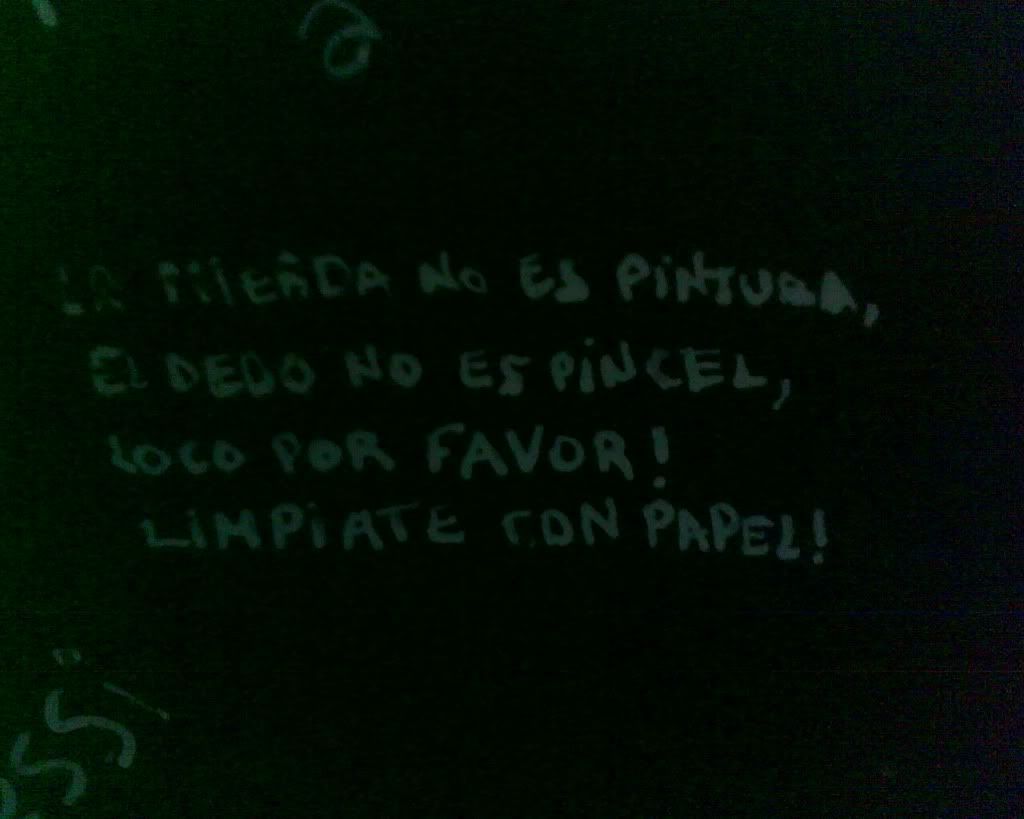 LA MIERDA NO ES PINTURA,
EL DEDO NO ES PINCEL,
LOCO POR FAVOR!
LIMPIATE CON PAPEL!